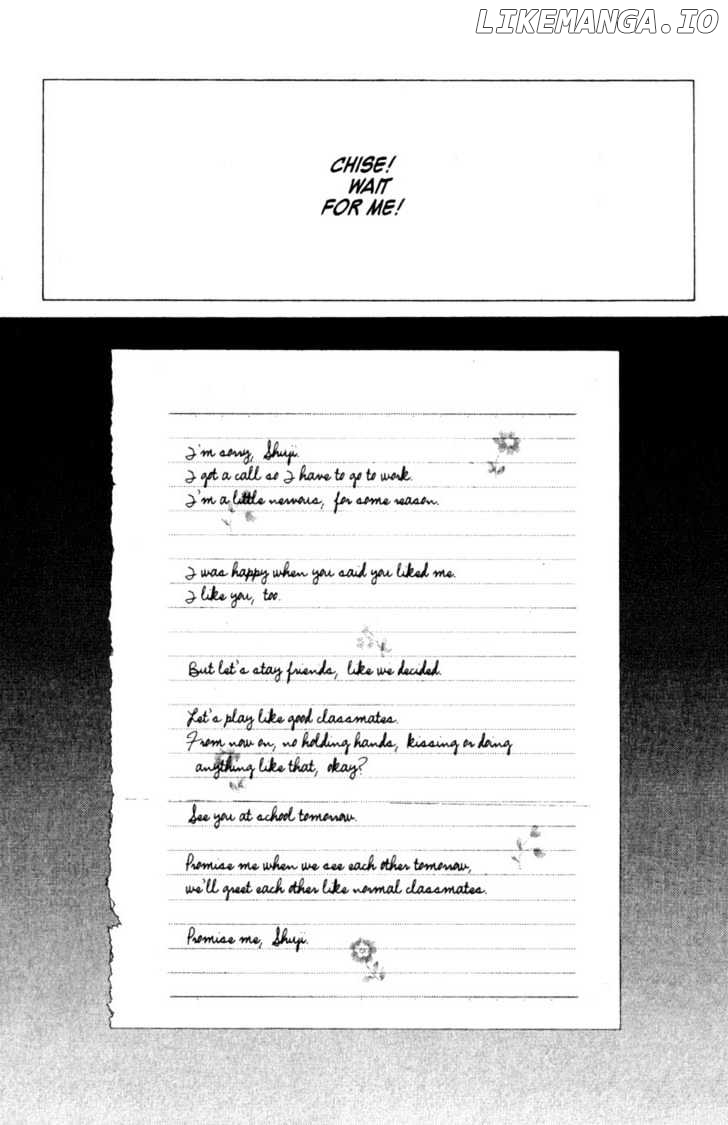 LIKEMANGA.IO
CHISE!
WAIT
FOR ME!
I'm sorry, Shuji.
I got a call so I have to go to work.
I'm a little nervous, for some reason.
I was happy when you said you liked me.
I like you, too.
But let's stay friends, like we decided.
Let's play like good classmates.
From now on, no holding hands, kissing or doing
anything like that, okay?
See you at school tomorrow.
Promise me when we see each other tomorrow,
we'll greet each other like normal classmates.
Promise me, Shuji.